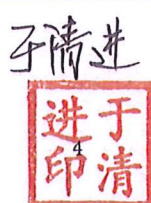 于清进
于清
进印
4